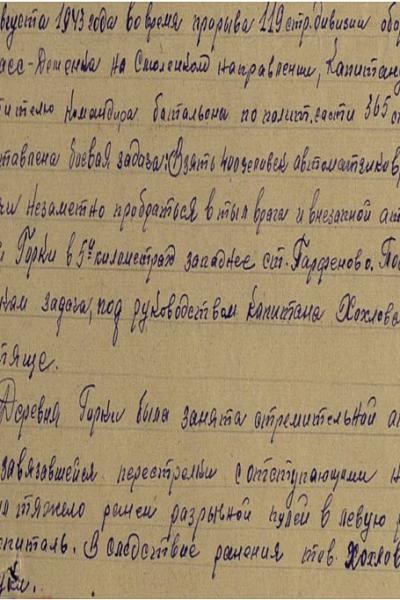 вгуста 1943 года во время прорыва 119 стр. дивизии обор
асс-Деменка на Смоленском направлении, Капитану
тителю командира батальона по полит. части 365 с
тавлена боевая задача: Взять человек автоматчиков
незаметно пробраться в тыл врага и внезапной ат
Горки в 5ти километрах западнее ст. Парфеново. Пос
ком задача, под руководством капитана Хохлова
тяще.
Деревня Горки была занята стремительной ат
завязавшейся перестрелки с отступающими н
тяжело ранен разрывной пулей в левую р
спиталь. В следствие ранения тов. Хохлов
уки.